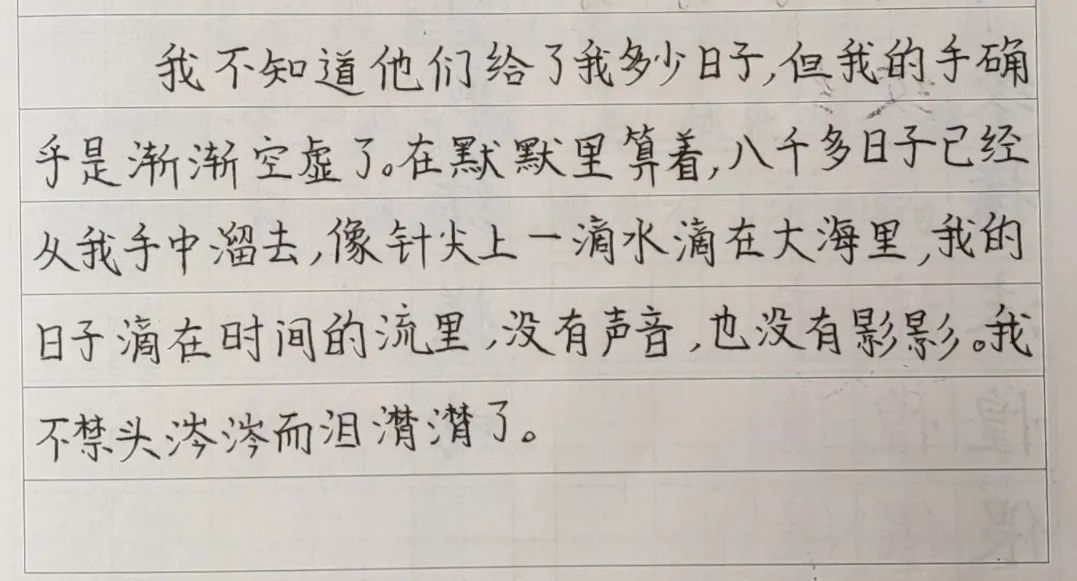 我不知道他们给了我多少日子,但我的手确
乎是渐渐空虚了。在默默里算着,八千多日子已经
从我手中溜去,像针尖上一滴水滴在大海里,我的
日子滴在时间的流里,没有声音,也没有影影。我
不禁头涔涔而泪潸潸了。